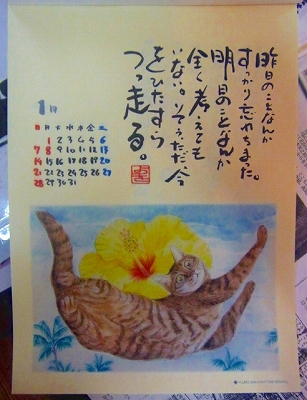 昨日のことなんか
すっかり忘れちまった。
明日のことなんか
全く考えても
いない。そうただ、今
をひたすら
つっ走る。
1月
日 月 火 水 木 金 土
1 2 3 4 5 6
7 8 9 10 11 12 13
14 15 16 17 18 19 20
21 22 23 24 25 26 27
28 29 30 31